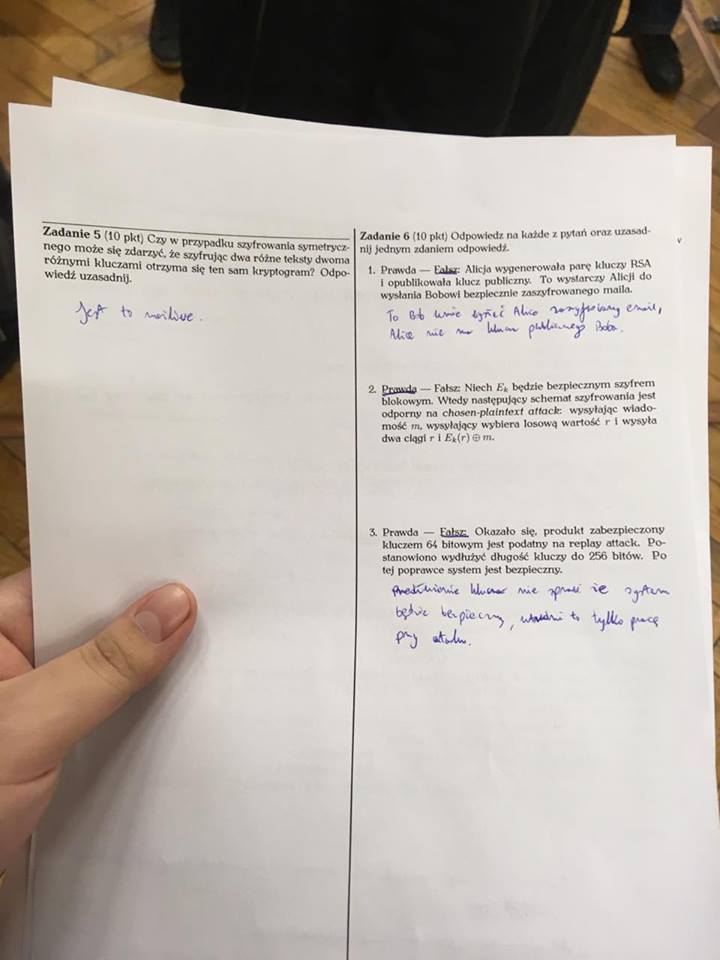 Zadanie 5 (10 pkt) Czy w przypadku szyfrowania symetrycz-
nego może się zdarzyć, że szyfrując dwa różne teksty dwoma
różnymi kluczami otrzyma się ten sam kryptogram? Odpo-
wiedź uzasadnij.
Jest to możliwe.
Zadanie 6 (10 pkt) Odpowiedz na każde z pytań oraz uzasad-
nij jednym zdaniem odpowiedź.
1. Prawda — Fałsz: Alicja wygenerowała parę kluczy RSA
i opublikowała klucz publiczny. To wystarczy Alicji do
wysłania Bobowi bezpiecznie zaszyfrowanego maila.
To Bob może Alice zaszyfrowany email,
Alice nie ma klucza publicznego Boba.
2. Prawda — Fałsz: Niech Eₖ będzie bezpiecznym szyfrem
blokowym. Wtedy następujący schemat szyfrowania jest
odporny na chosen-plaintext attack: wysyłając wiado-
mość m, wysyłający wybiera losową wartość r i wysyła
dwa ciągi r i Eₖ(r) ⊕ m.
3. Prawda — Fałsz: Okazało się, produkt zabezpieczony
kluczem 64 bitowym jest podatny na replay attack. Po-
stanowiono wydłużyć długość kluczy do 256 bitów. Po
tej poprawce system jest bezpieczny.
klucza nie sprawi że system
będzie bezpieczny, utrudni to tylko pracę
przy ataku.
v